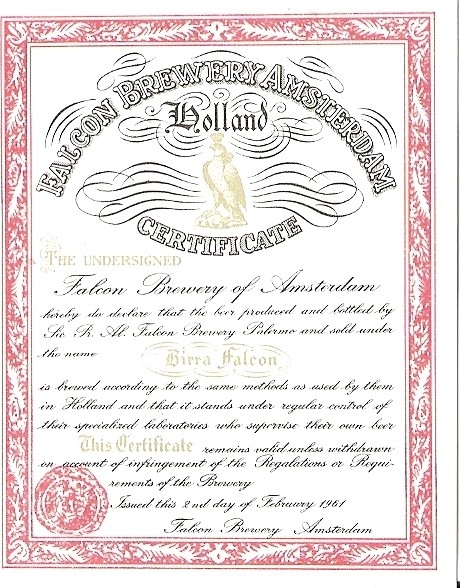 FALCON BREWERY AMSTERDAM
Holland
CERTIFICATE
THE UNDERSIGNED
Falcon Brewery of Amsterdam
hereby do declare that the beer produced and bottled by
Sic. R. Al. Falcon Brewery Palermo and sold under
the name
Birra Falcon
is brewed according to the same methods as used by them
in Holland and that it stands under regular control of
their specialized laboratories who supervise their own beer
This Certificate remains valid unless withdrawn
on account of infringement of the Regulations or Requi-
rements of the Brewery
Issued this 2nd day of February 1961
Falcon Brewery Amsterdam